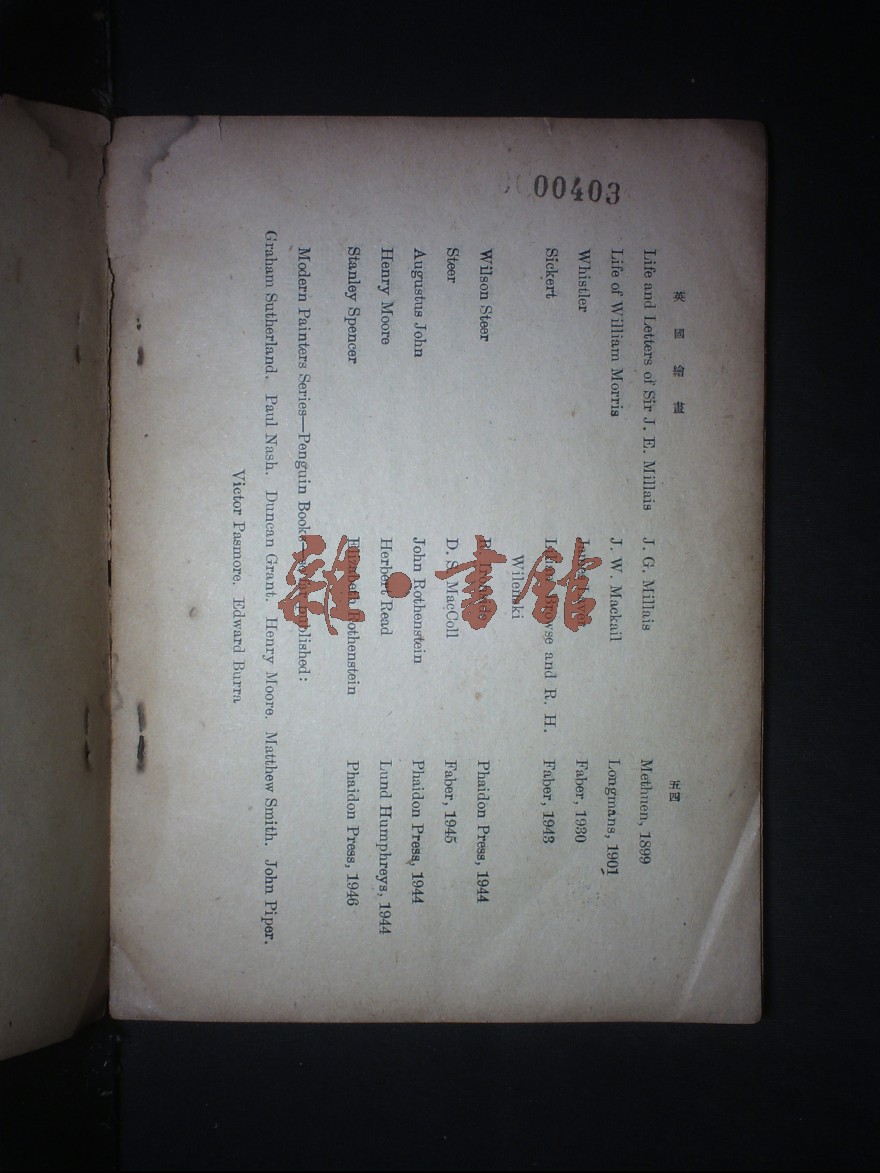 00403
英國繪畫
五四
Life and Letters of Sir J. E. Millais J. G. Millais Methuen, 1899
Life of William Morris J. W. Mackail Longmans, 1901
Whistler Faber, 1930
Sickert Browse and R. H. Wilenski Faber, 1943
Wilson Steer Phaidon Press, 1944
Steer D. S. MacColl Faber, 1945
Augustus John John Rothenstein Phaidon Press, 1944
Henry Moore Herbert Read Lund Humphreys, 1944
Stanley Spencer Elizabeth Rothenstein Phaidon Press, 1946
Modern Painters Series—Penguin Books published:
Graham Sutherland. Paul Nash. Duncan Grant. Henry Moore. Matthew Smith. John Piper.
Victor Pasmore. Edward Burra